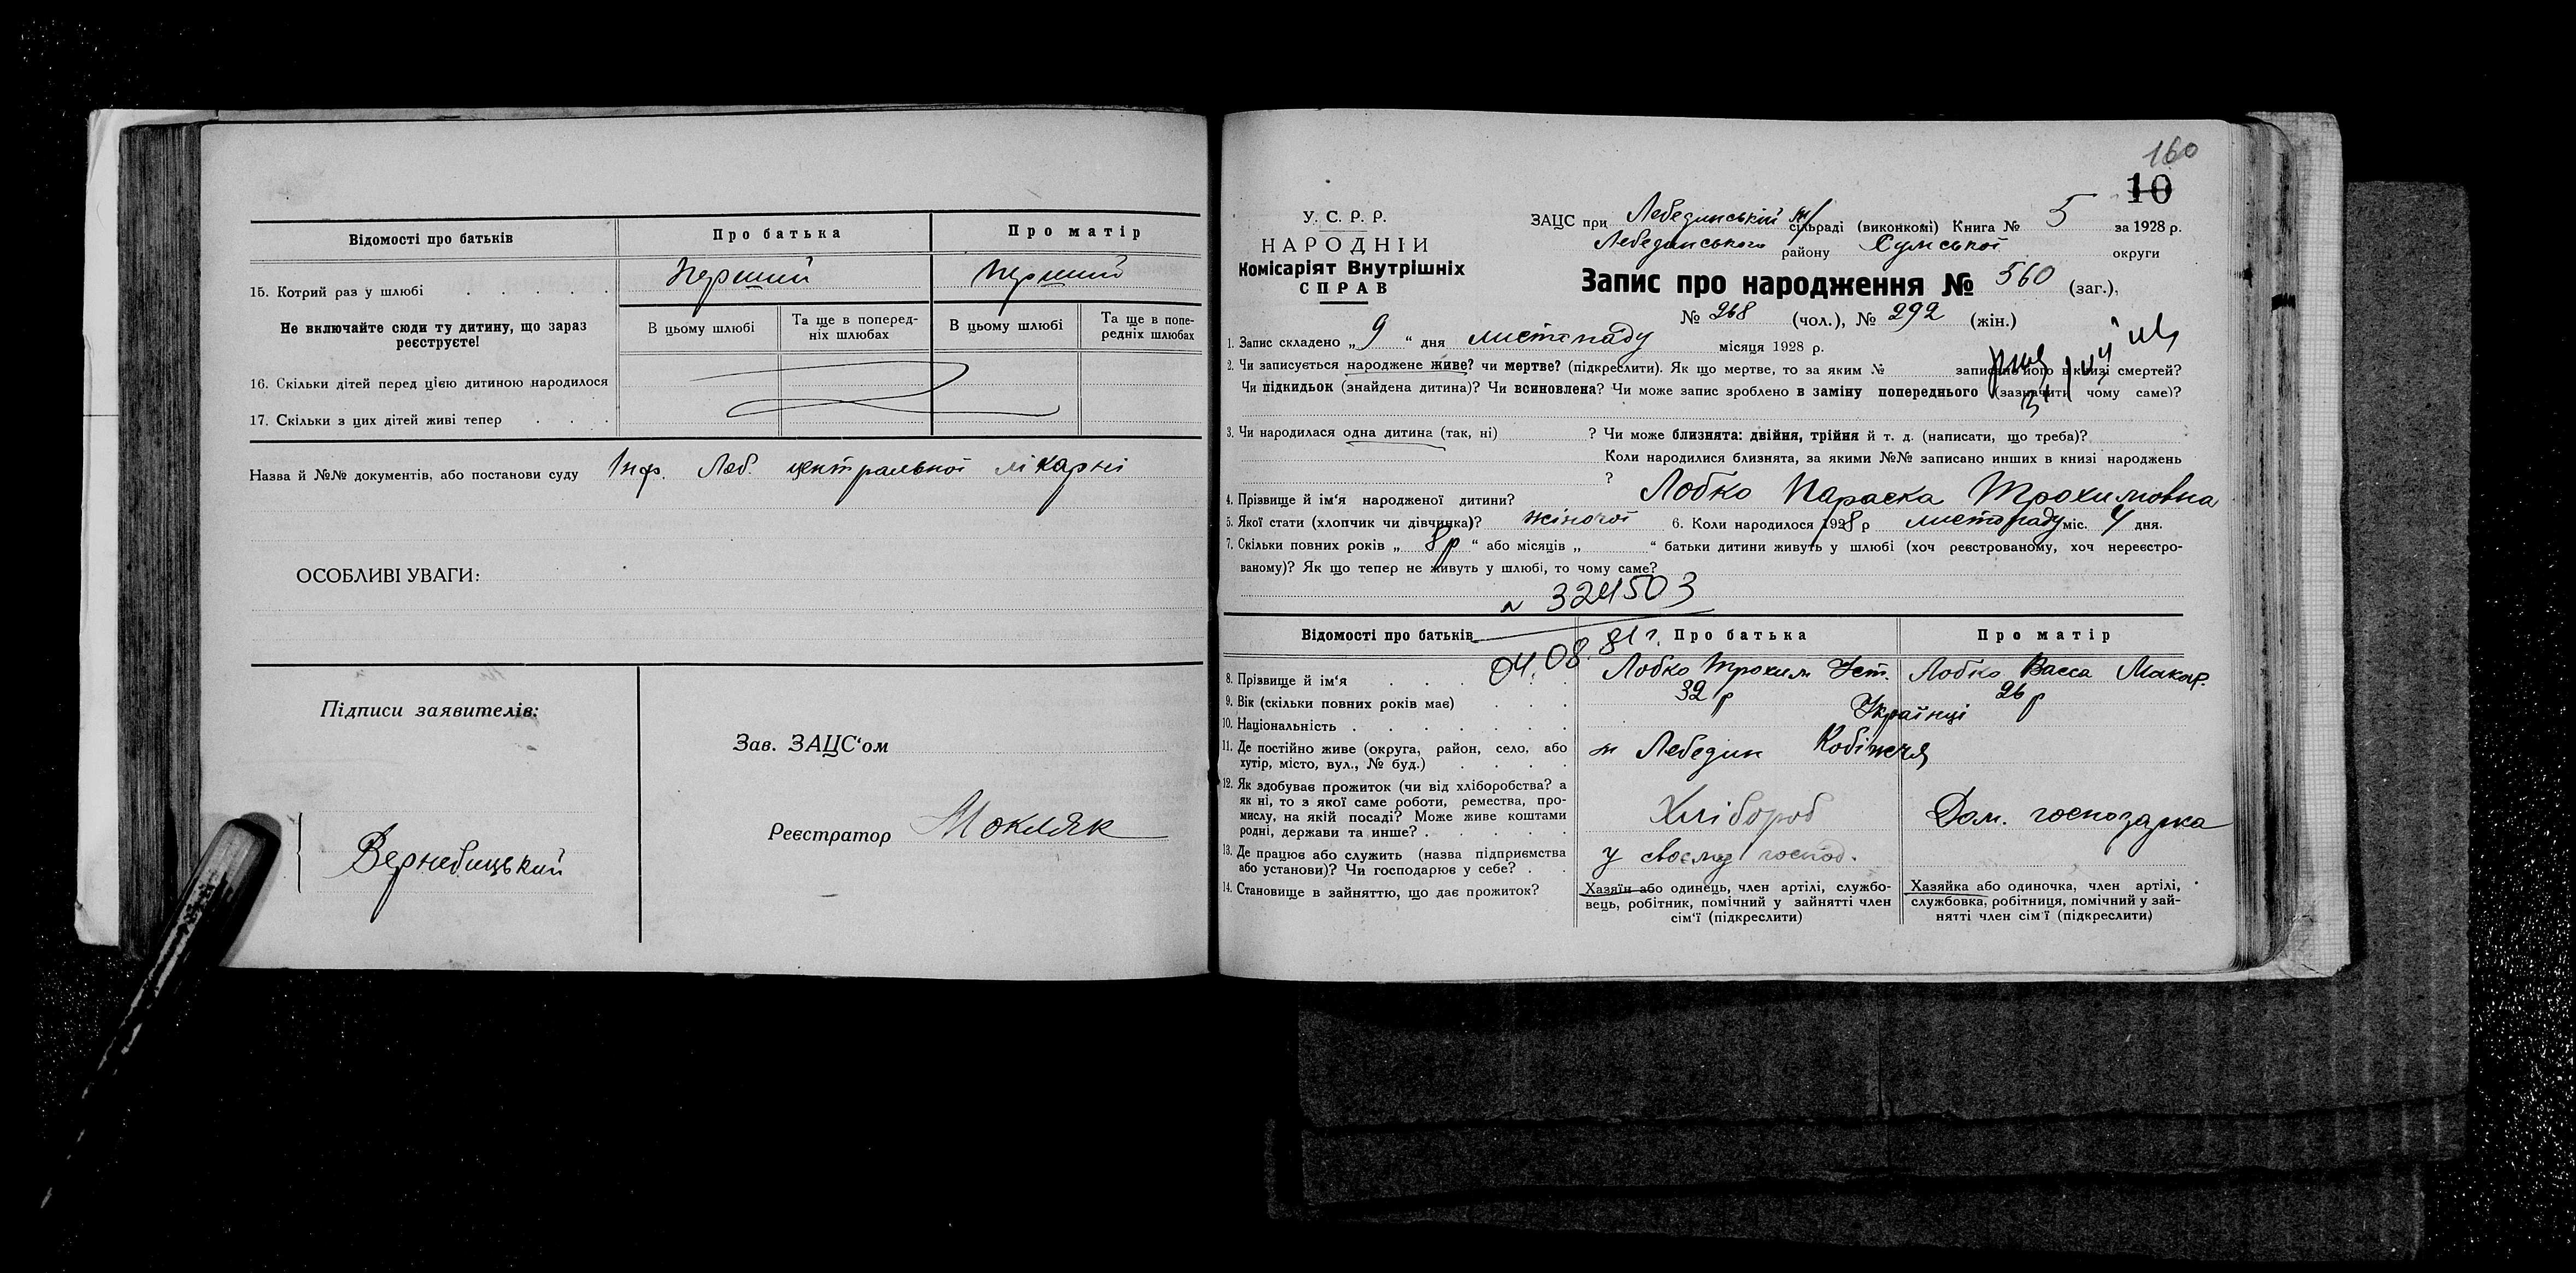 Відомості про батьків
Про батька
Про матір
15. Котрий раз у шлюбі
Перший
Перший
Не включайте сюди ту дитину, що зараз реєструєте!
В цьому шлюбі
Та ще в попередніх шлюбах
В цьому шлюбі
Та ще в попередніх шлюбах
16. Скільки дітей перед цією дитиною народилося
17. Скільки з цих дітей живі тепер
Назва й №№ документів, або постанови суду Інф. Леб. центральної лікарні
ОСОБЛИВІ УВАГИ:
Підписи заявителів:
Зав. ЗАЦС'ом
Реєстратор Мокляк
160
10
У. С. Р. Р.
НАРОДНІЙ
Комісаріят Внутрішніх
СПРАВ
ЗАЦС при Лебединській м/сільраді (виконкомі) Книга № 5 за 1928 р.
Лебединського району Сумської округи
Запис про народження № 560 (заг.),
№ 268 (чол.), № 292 (жін.)
1. Запис складено „ 9 “ дня листопаду місяця 1928 р.
2. Чи записується народжене живе? чи мертве? (підкреслити). Як що мертве, то за яким № записано його в книзі смертей?
Чи підкидьок (знайдена дитина)? Чи всиновлена? Чи може запис зроблено в заміну попереднього (зазначити чому саме)?
3. Чи народилася одна дитина (так, ні) ? Чи може близнята: двійня, трійня й т. д. (написати, що треба)?
Коли народилися близнята, за якими №№ записано инших в книзі народжень
?
4. Прізвище й ім'я народженої дитини? Лобко Параска Трохимовна
5. Якої статі (хлопчик чи дівчинка)? жіночої 6. Коли народилося 1928 р листопаду міс. 4 дня.
7. Скільки повних років „ 8 р “ або місяців „ “ батьки дитини живуть у шлюбі (хоч реєстрованому, хоч нереєстрованому)? Як що тепер не живуть у шлюбі, то чому саме?
№ 324503
04.08.81 г.
Відомості про батьків
Про батька
Про матір
8. Прізвище й ім'я
Лобко Трохим Уст.
Лобко Васса Макар.
9. Вік (скільки повних років має)
32 р
26 р
10. Національність
Українці
11. Де постійно живе (округа, район, село, або хутір, місто, вул., № буд.)
м Лебедин
12. Як здобуває прожиток (чи від хліборобства? а як ні, то з якої саме роботи, ремества, промислу, на якій посаді? Може живе коштами родні, держави та инше?
Хлібороб
Дом. господарка
13. Де працює або служить (назва підприємства або установи)? Чи господарює у себе?
у своєму господ.
14. Становище в зайняттю, що дає прожиток?
Хазяїн або одинець, член артілі, службовець, робітник, помічний у зайнятті член сім'ї (підкреслити)
Хазяйка або одиночка, член артілі, службовка, робітниця, помічний у зайнятті член сім'ї (підкреслити)